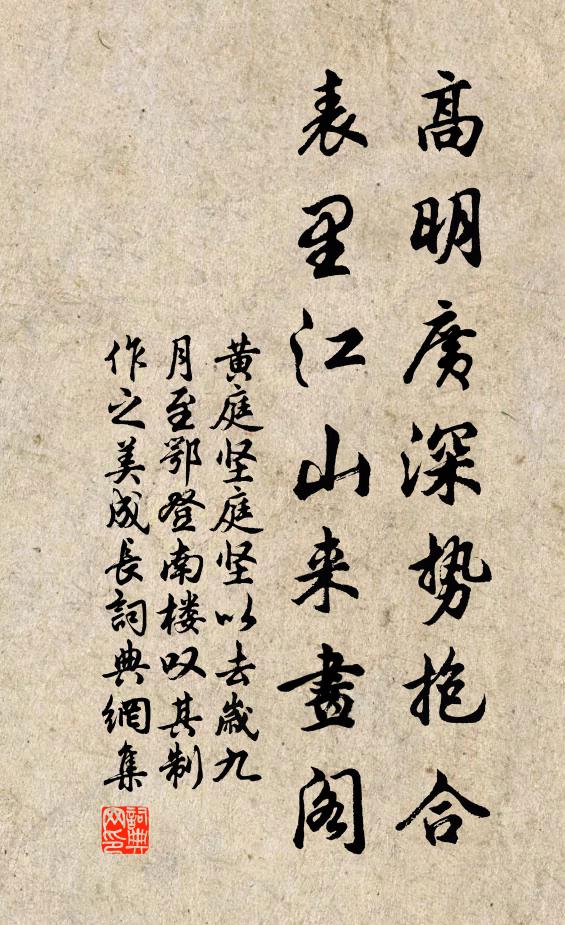 高明廣深势抱合
表里江山来畫阁
黄庭坚庭坚以去歳九
月至鄂登南楼叹其制
作之美成長詞典網集
詞典
网印